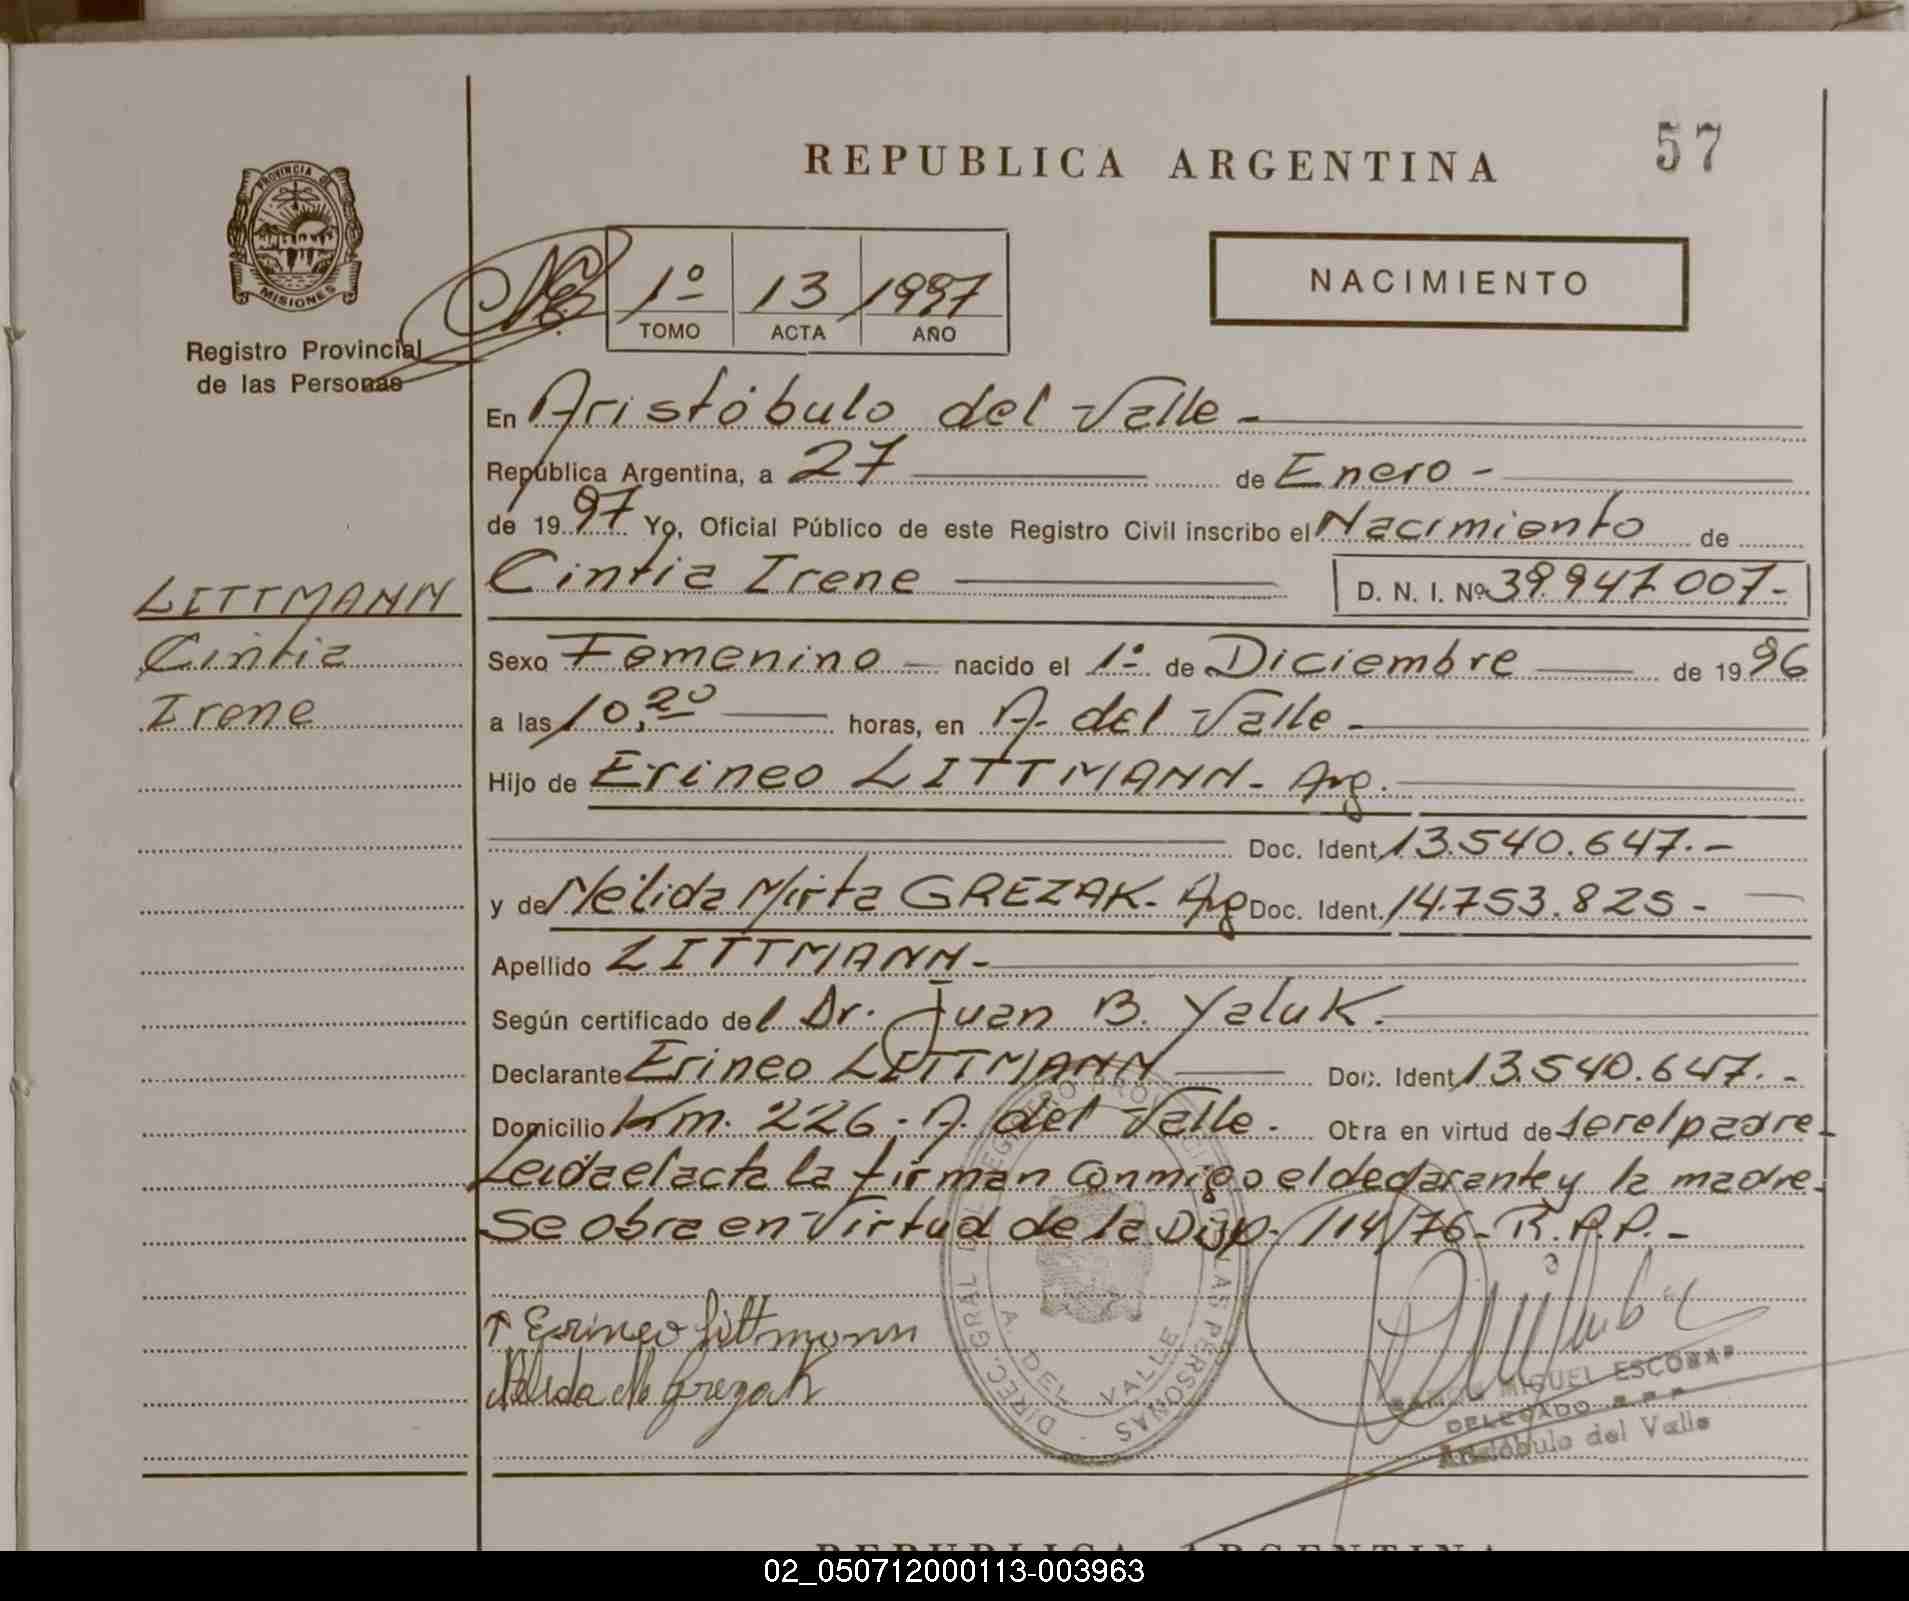 REPUBLICA ARGENTINA
57
PROVINCIA DE
MISIONES
Registro Provincial
de las Personas
1º 13 1997
TOMO ACTA AÑO
NACIMIENTO
En Aristóbulo del Valle -
República Argentina, a 27 de Enero -
de 1997 Yo, Oficial Público de este Registro Civil inscribo el Nacimiento de
Cintia Irene D. N. I. Nº 39.947.007-
LITTMANN
Cintia
Irene
Sexo Femenino nacido el 1º de Diciembre de 1996
a las 10,20 horas, en A. del Valle -
Hijo de Erineo LITTMANN - Arg.
Doc. Ident. 13.540.647.-
y de Nélida Mirta GREZAK - Arg Doc. Ident. 14.753.825 -
Apellido LITTMANN -
Según certificado del Dr. Juan B. Yaluk.
Declarante Erineo LITTMANN Doc. Ident. 13.540.647. -
Domicilio Km. 226 - A. del Valle - Obra en virtud de ser el padre -
Leida el acta la firman conmigo el declarante y la madre -
Se obra en Virtud de la Disp. 114/76 - R.P.P. -
Erineo Littmann
Nelida M Grezak
DIREC. GRAL DEL REGISTRO PROVINCIAL DE LAS PERSONAS
A. DEL VALLE
RAMON MIGUEL ESCOBAR
DELEGADO
Aristóbulo del Valle
REPUBLICA ARGENTINA
02_050712000113-003963